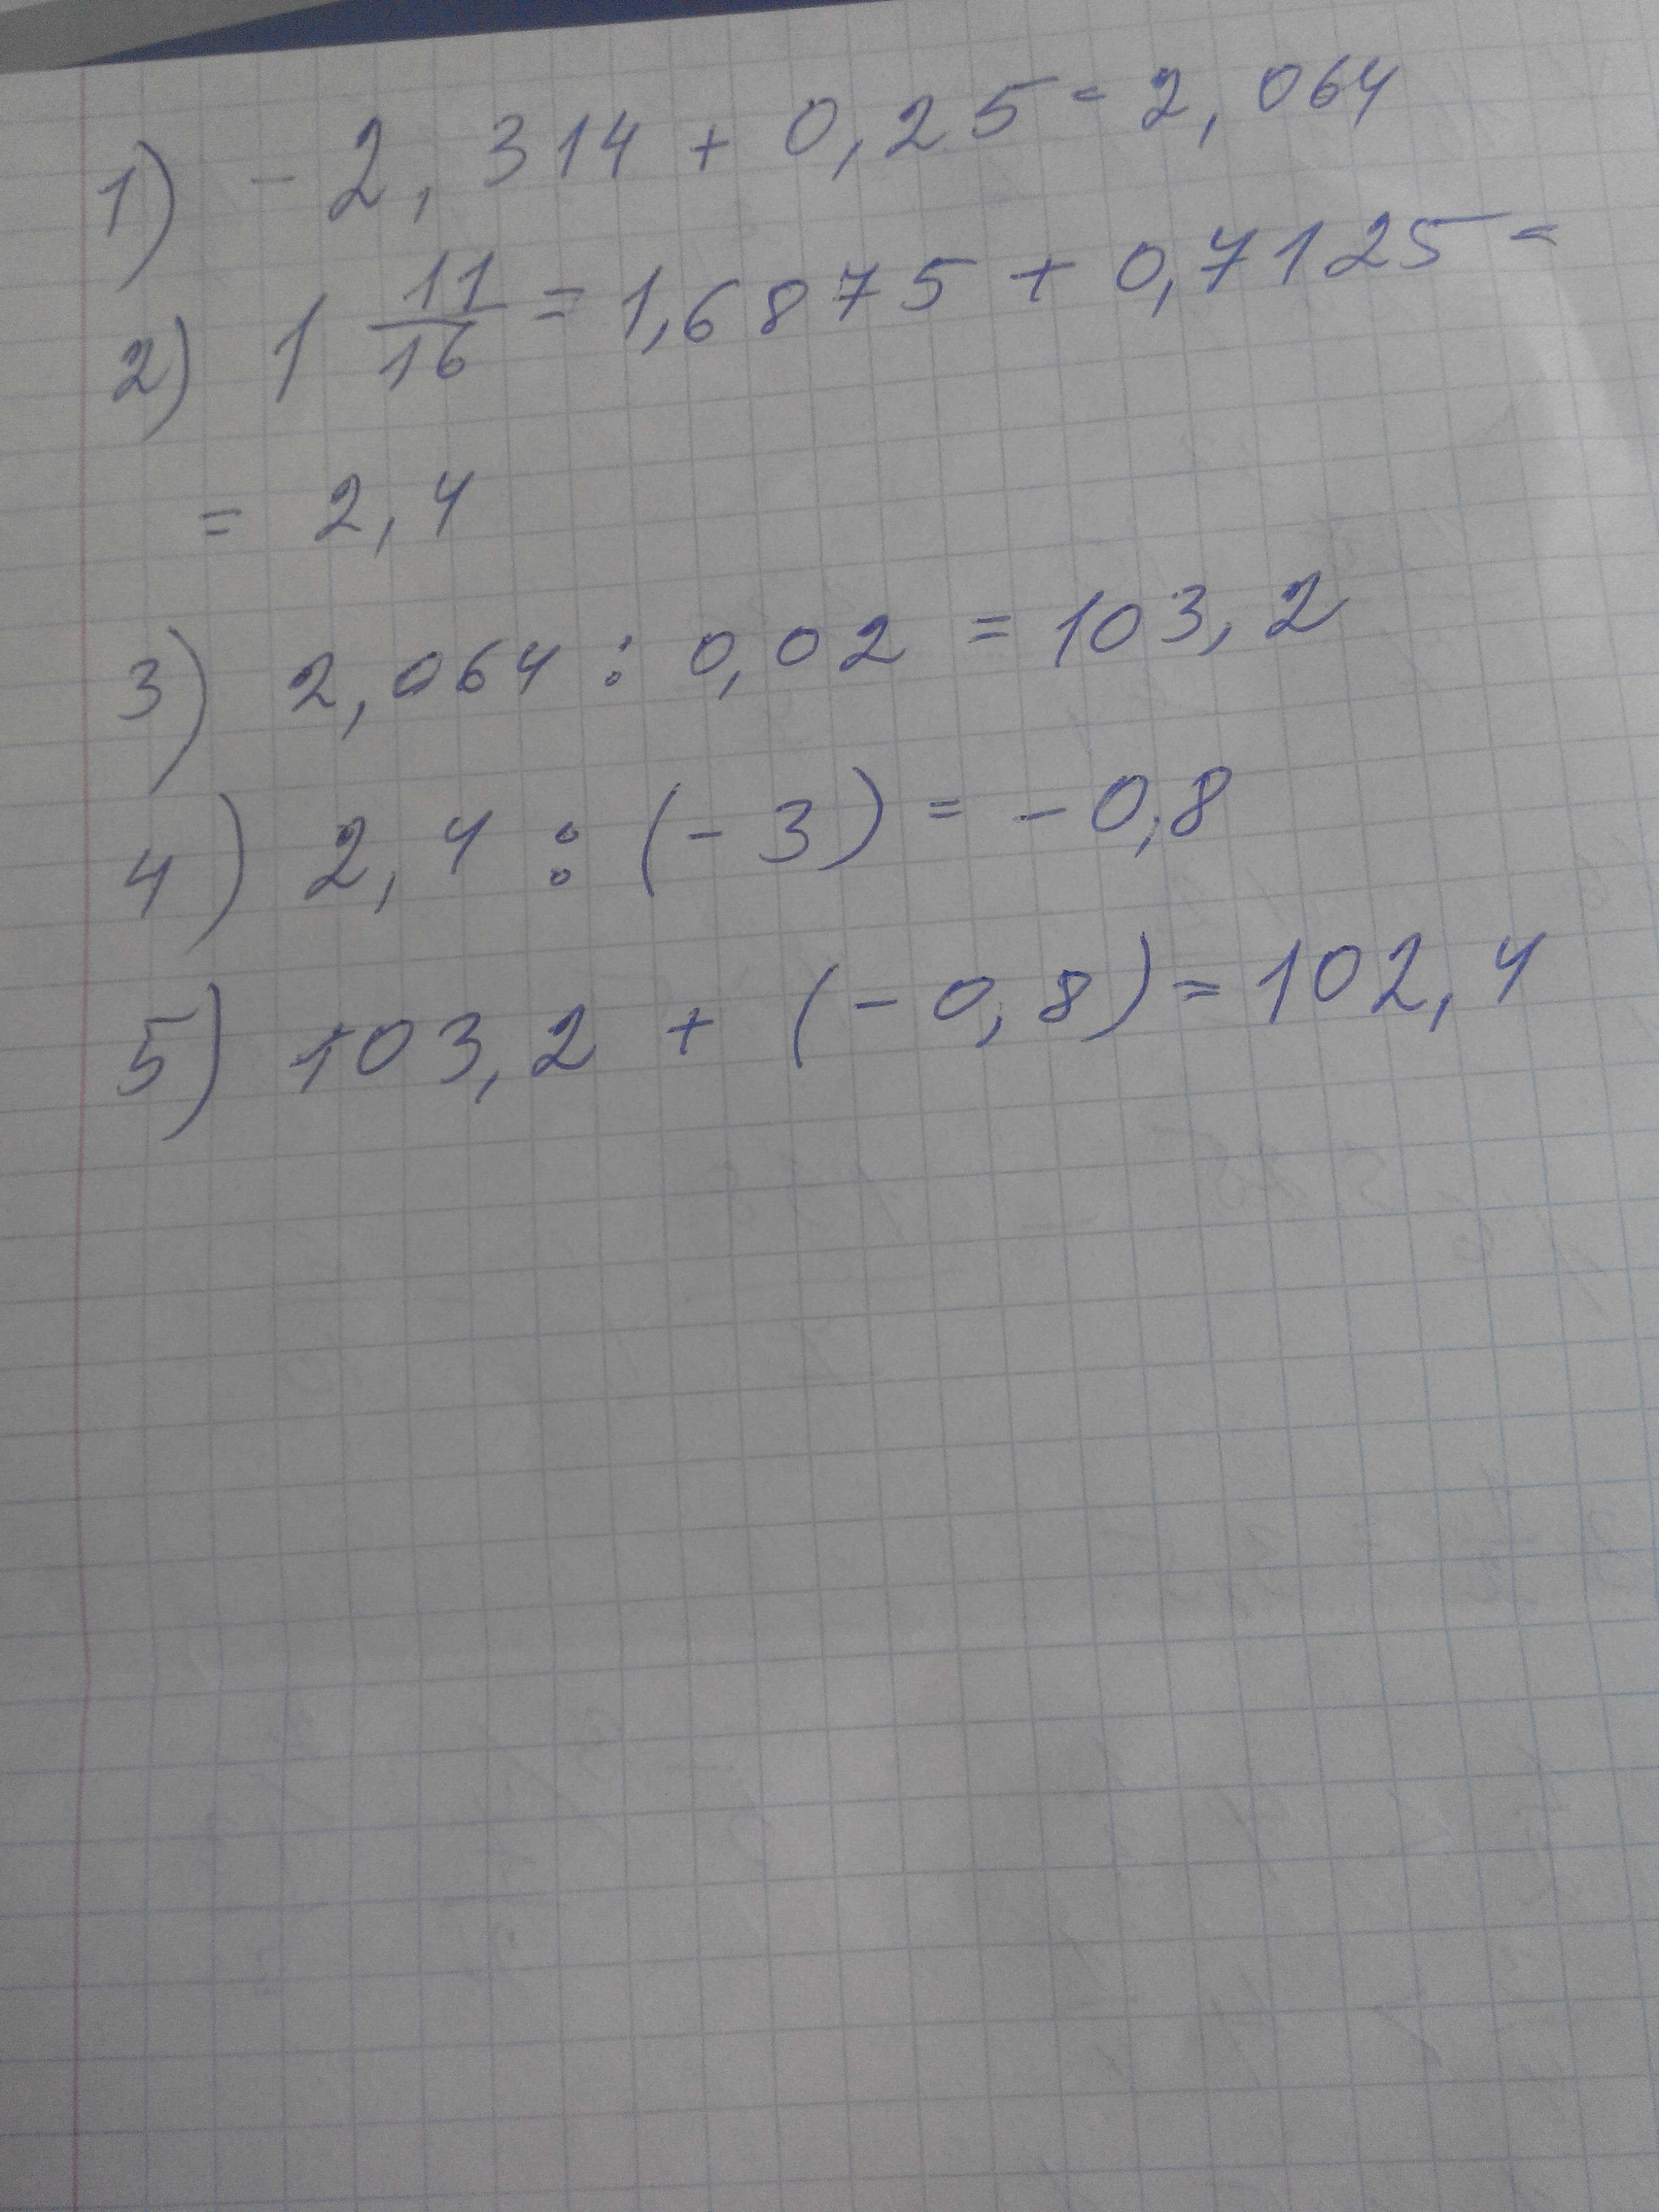 1) - 2,314 + 0,25 = 2,064
2) 1 11/16 = 1,6875 + 0,7125 =
= 2,4
3) 2,064 : 0,02 = 103,2
4) 2,4 : (- 3) = - 0,8
5) 103,2 + (- 0,8) = 102,4